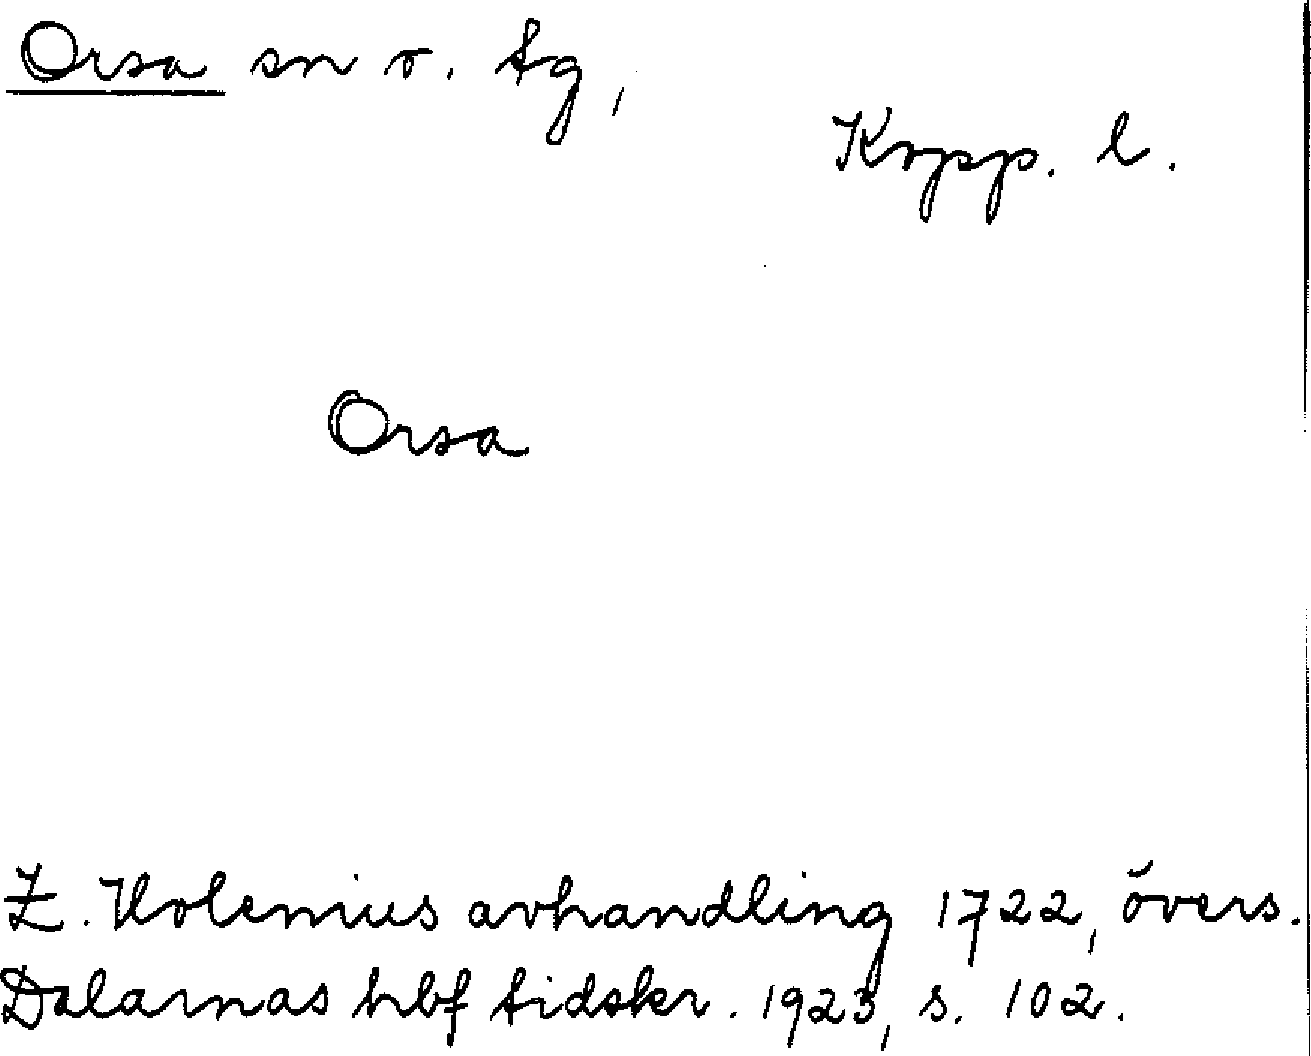 Orsa sn o. tg,
Kopp. l.
Orsa
Z. Holenius avhandling 1722, övers.
Dalarnas hbf tidskr. 1923, s. 102.